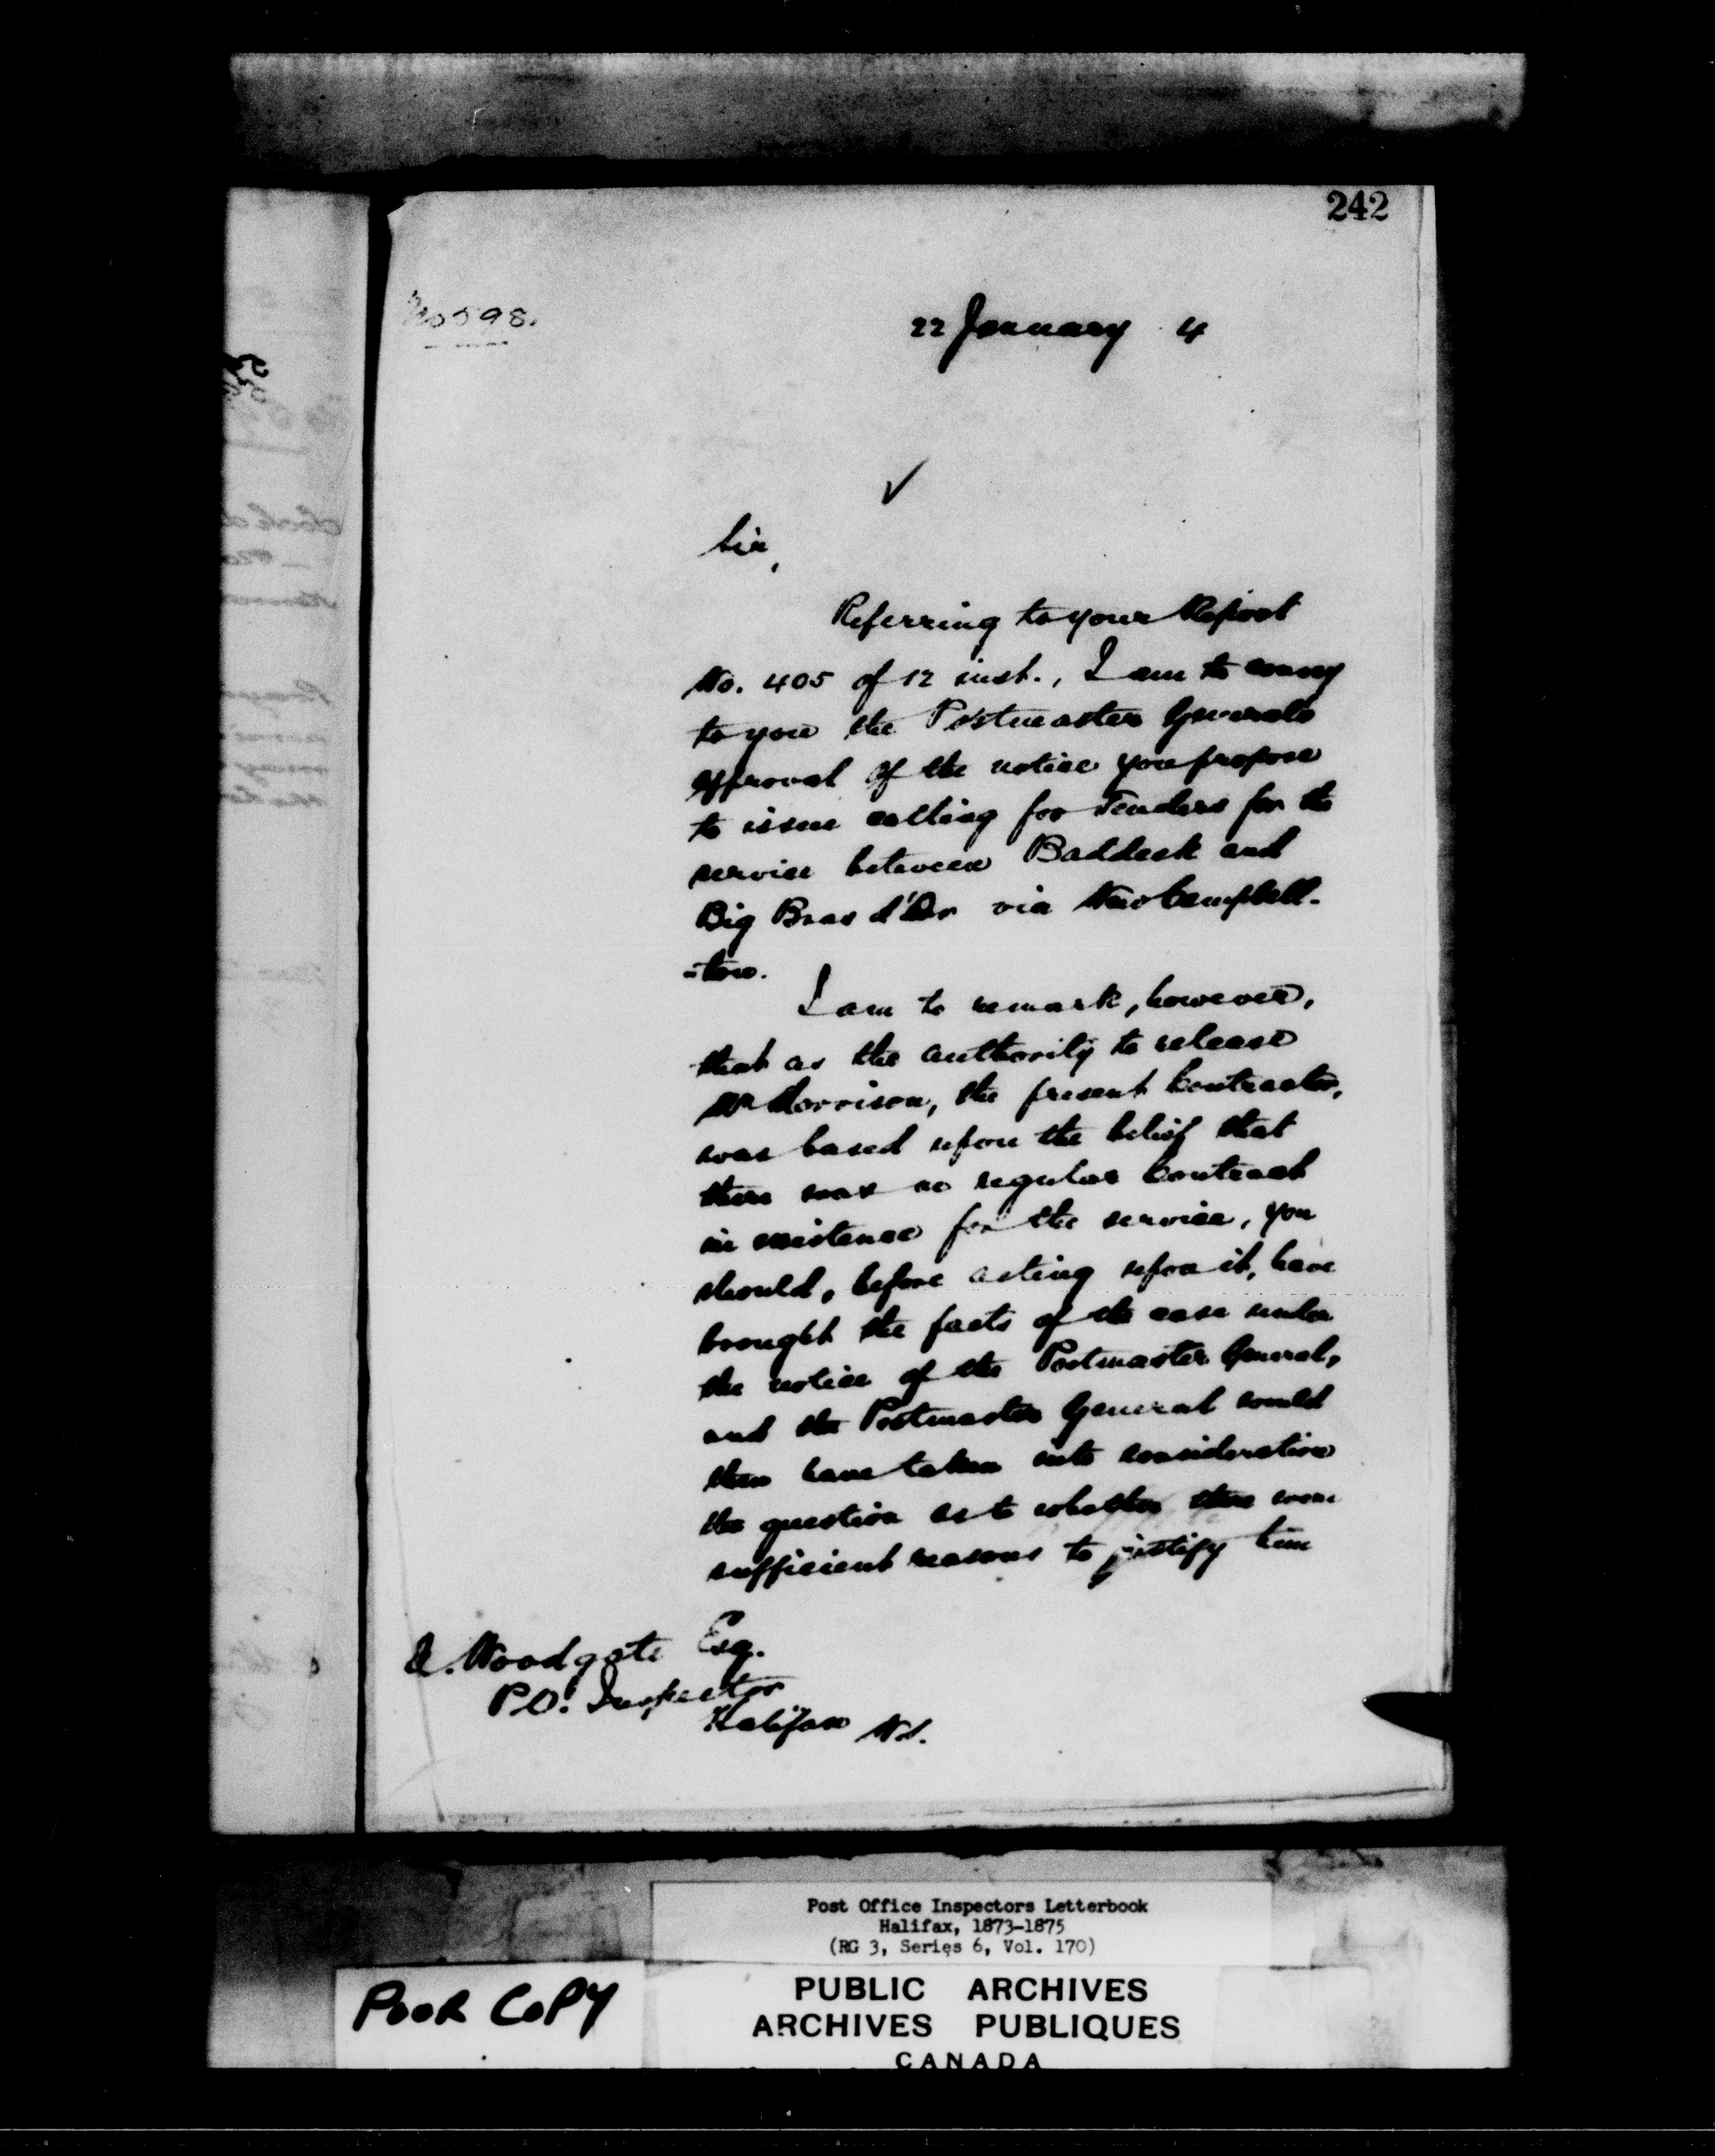 242
No 598.
22 January 4
Sir,
Referring to your Report
No. 405 of 12 inst., I am to convey
to you the Postmaster Generals
approval of the notice you propose
to issue calling for Tenders for the
service between Baddeck and
Big Bras d'Or via New Campbell-
-ton.
I am to remark, however,
that as the authority to release
Mr Morrison, the present Contractor,
was based upon the belief that
there was no regular Contract
in existence for the service, you
should, before acting upon it, have
brought the facts of the case under
the notice of the Postmaster General,
and the Postmaster General would
then have taken into consideration
the question as to whether there were
sufficient reasons to justify him
Woodgate Esq.
P.O. Inspector
Halifax N.S.
Post Office Inspectors Letterbook
Halifax, 1873-1875
(RG 3, Series 6, Vol. 170)
POOR COPY
PUBLIC ARCHIVES
ARCHIVES PUBLIQUES
CANADA